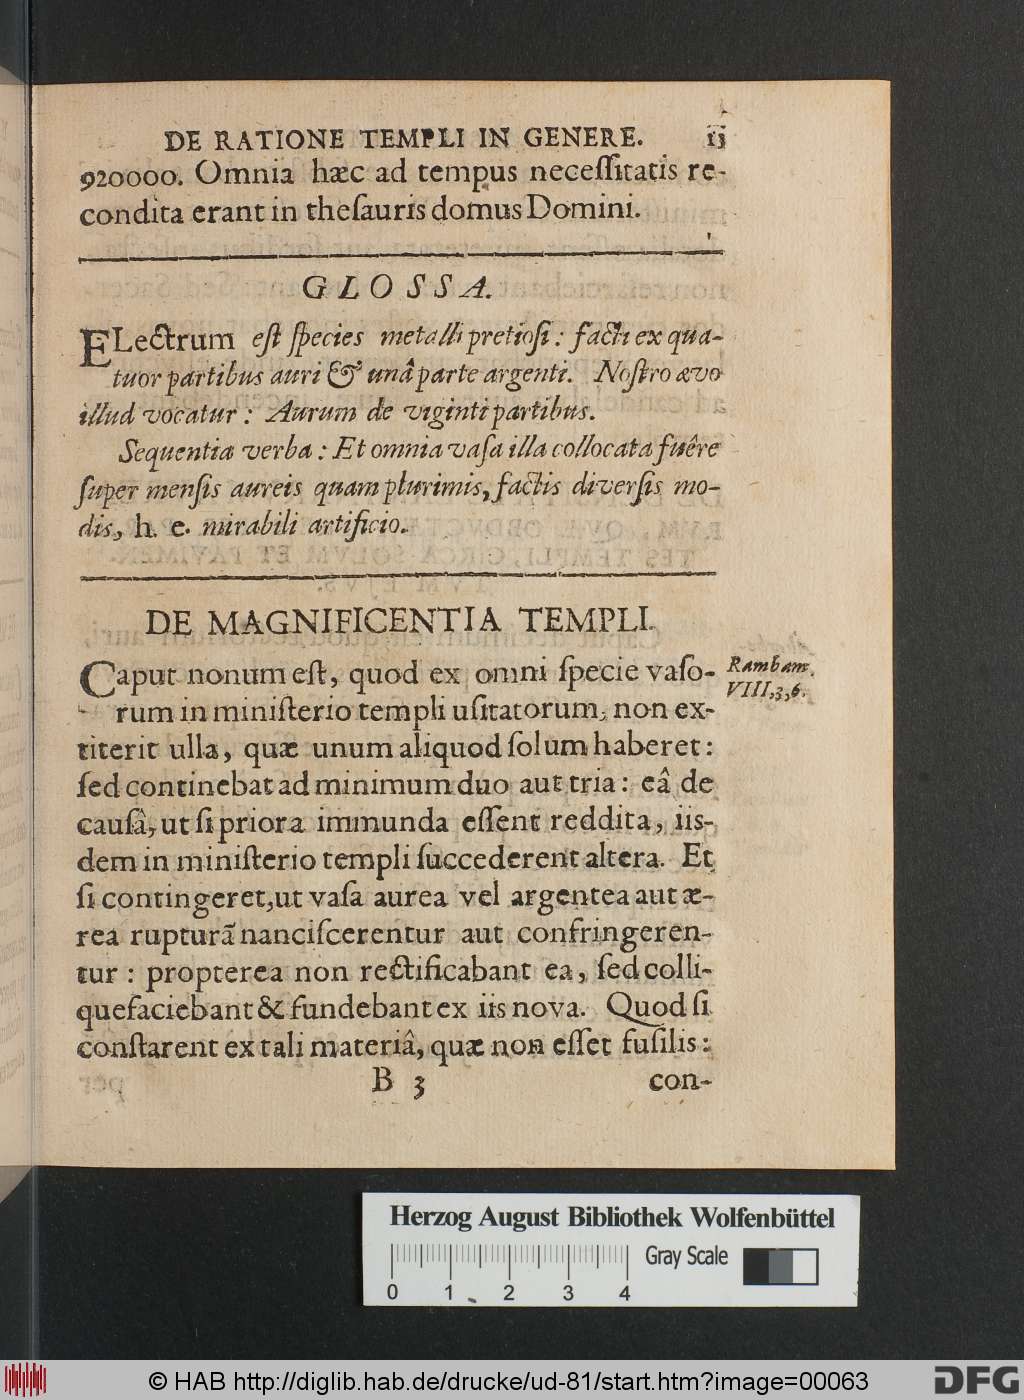 DE RATIONE TEMPLI IN GENERE. 13
920000. Omnia hæc ad tempus neceſſitatis re-
condita erant in theſauris domus Domini.
GLOSSA.
ELectrum eſt ſpecies metalli pretioſi: facti ex qua-
tuor partibus auri & unâ parte argenti. Noſtro ævo
illud vocatur: Aurum de viginti partibus.
Sequentia verba: Et omnia vaſa illa collocata fuêre
ſuper menſis aureis quam plurimis, factis diverſis mo-
dis, h. e. mirabili artificio.
DE MAGNIFICENTIA TEMPLI.
Caput nonum eſt, quod ex omni ſpecie vaſo-
Rambam.
VIII,3,6.
rum in miniſterio templi uſitatorum, non ex-
titerit ulla, quæ unum aliquod ſolum haberet:
ſed continebat ad minimum duo aut tria: eâ de
cauſâ, ut ſi priora immunda eſſent reddita, iis-
dem in miniſterio templi ſuccederent altera. Et
ſi contingeret, ut vaſa aurea vel argentea aut æ-
rea rupturã nanciſcerentur aut confringeren-
tur: propterea non rectificabant ea, ſed colli-
quefaciebant & fundebant ex iis nova. Quod ſi
conſtarent ex tali materiâ, quæ non eſſet fuſilis:
B 3 con-
Herzog August Bibliothek Wolfenbüttel
Gray Scale
0 1 2 3 4
© HAB http://diglib.hab.de/drucke/ud-81/start.htm?image=00063
DFG